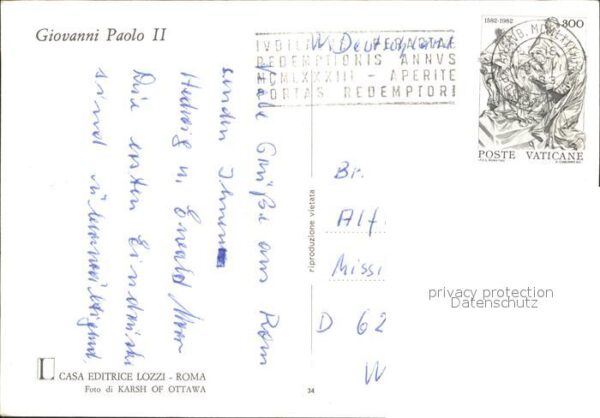 Giovanni Paolo II
W. Deutschland
IVBILAEI HEBNATAE
REDEMPTIONIS ANNVS
MCMLXXXIII - APERITE
PORTAS REDEMPTORI
1582-1982
300
POSTE VATICANE
Viele Grüße aus Rom
senden Ihnen
Hedwig u. Ewald
Die ersten Eindrücke
sind überwältigend
riproduzione vietata
Br.
Alf
Missi
D 62
W
privacy protection
Datenschutz
L CASA EDITRICE LOZZI - ROMA
Foto di KARSH OF OTTAWA
34